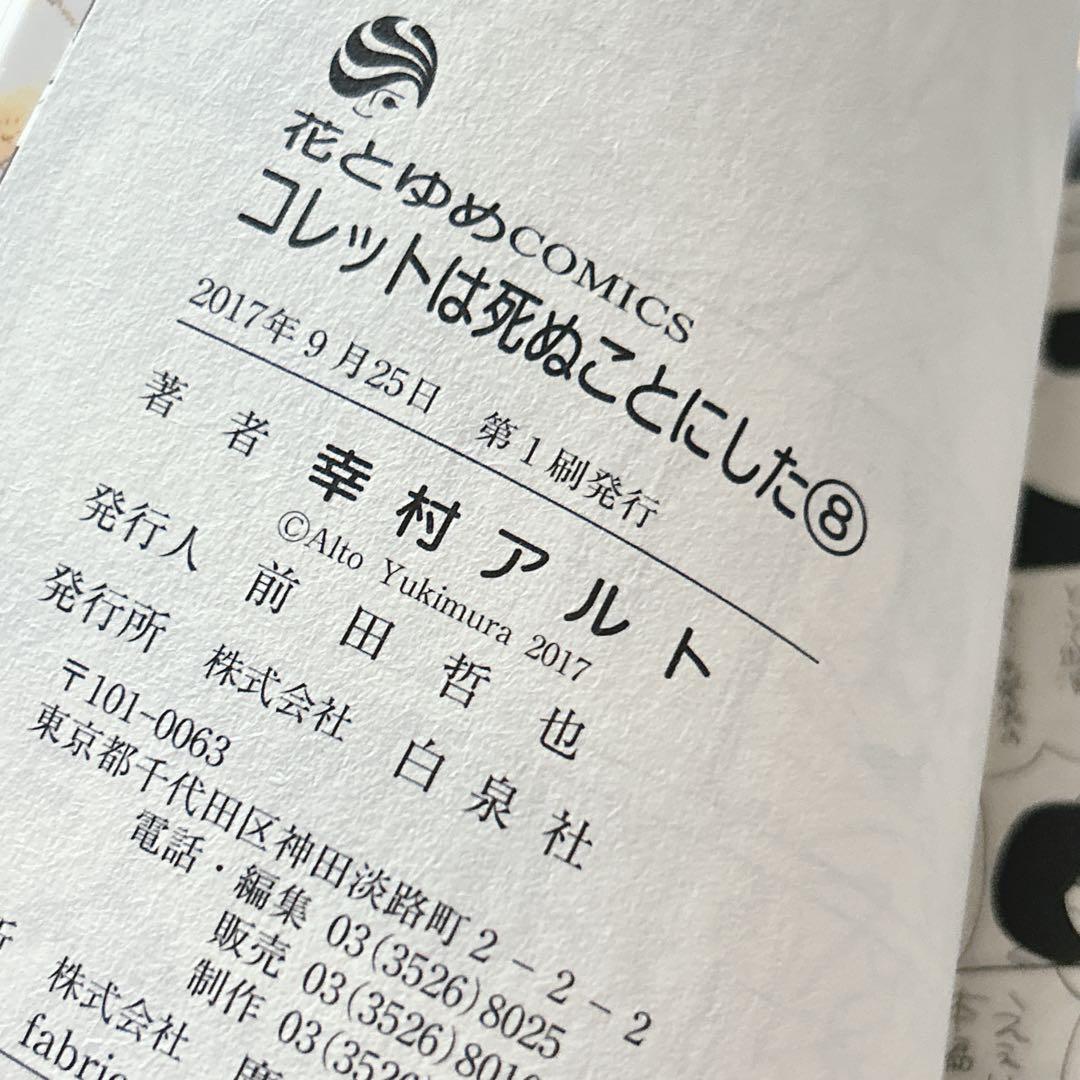 花とゆめCOMICS
コレットは死ぬことにした⑧
2017年9月25日 第1刷発行
著者 幸村アルト
©Alto Yukimura 2017
発行人 前田哲也
発行所 株式会社 白泉社
〒101-0063
東京都千代田区神田淡路町2-2-2
電話・編集 03(3526)8025
販売 03(3526)801
制作 03(352
株式会社
fabric